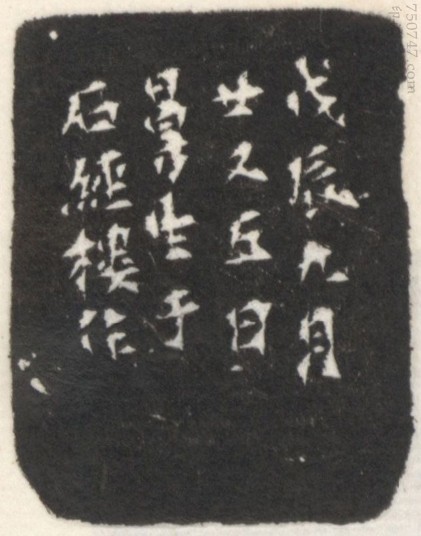 戊辰九月
廿又五日
曼生于
石經樓作
750747.com